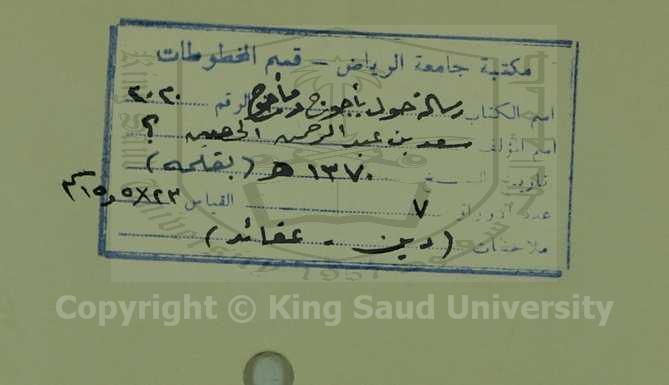 مكتبة جامعة الرياض - قسم المخطوطات
اسم الكتاب رسالة حول يأجوج ومأجوج الرقم ٢٠٢٠
اسم المؤلف سعد بن عبدالرحمن الحصين ؟
تاريخ النسخ ١٣٧٠ هـ (بقلمه)
عدد الأوراق ٧ القياس ٢٣×١٥٫٥ سم
ملاحظات (دين - عقائد)
Copyright © King Saud University